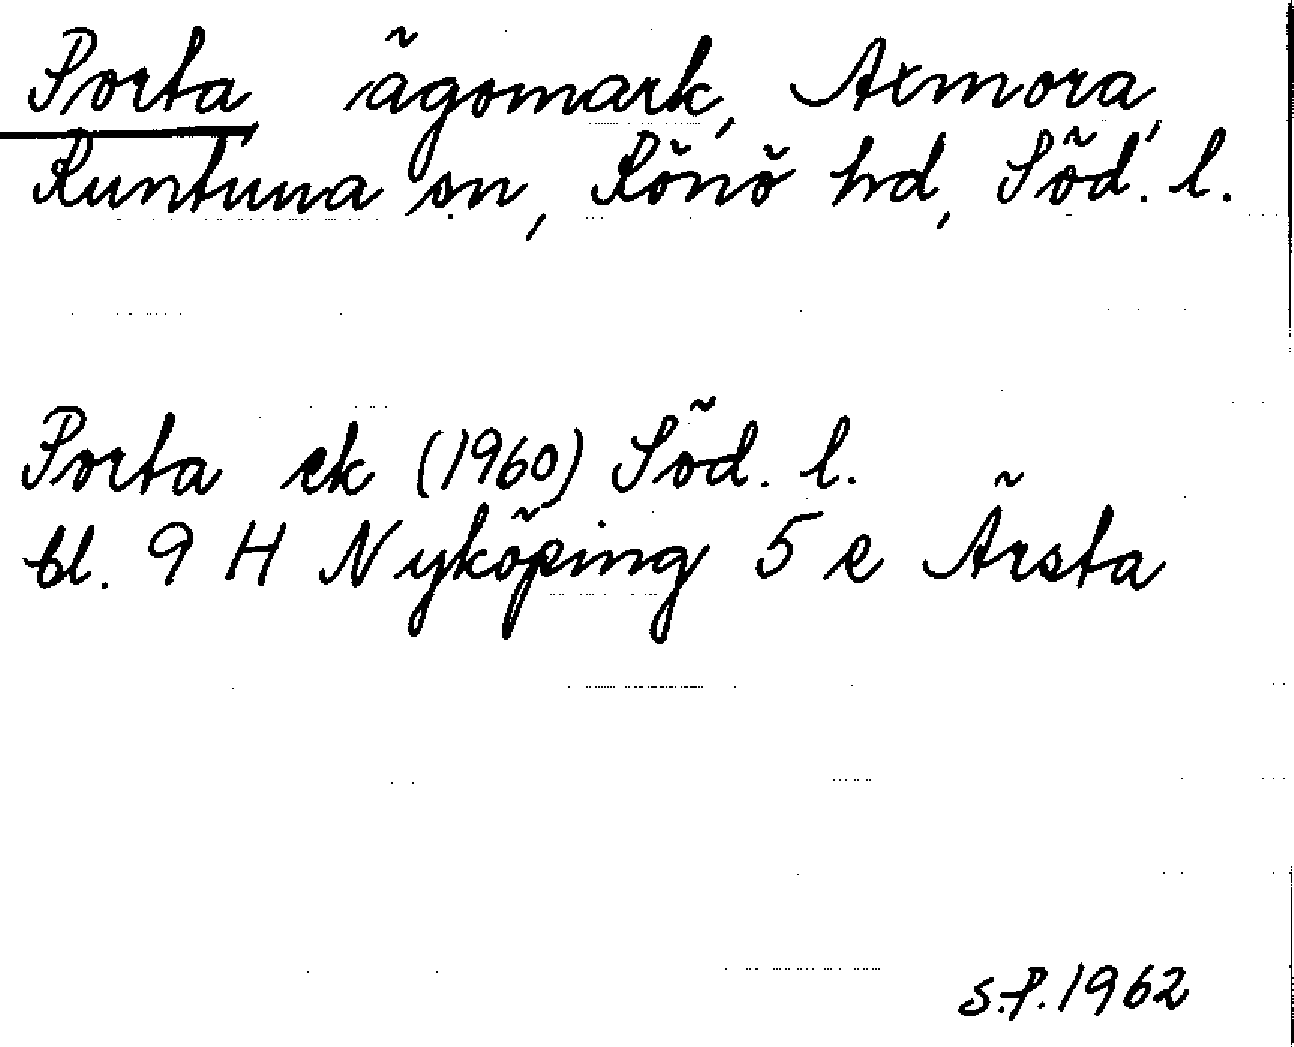 Porta, ägomark, Axmora,
Runtuna sn, Rönö hd, Söd. l.
Porta ek (1960) Söd. l.
bl. 9 H Nyköping 5 e Ärsta
S.P. 1962